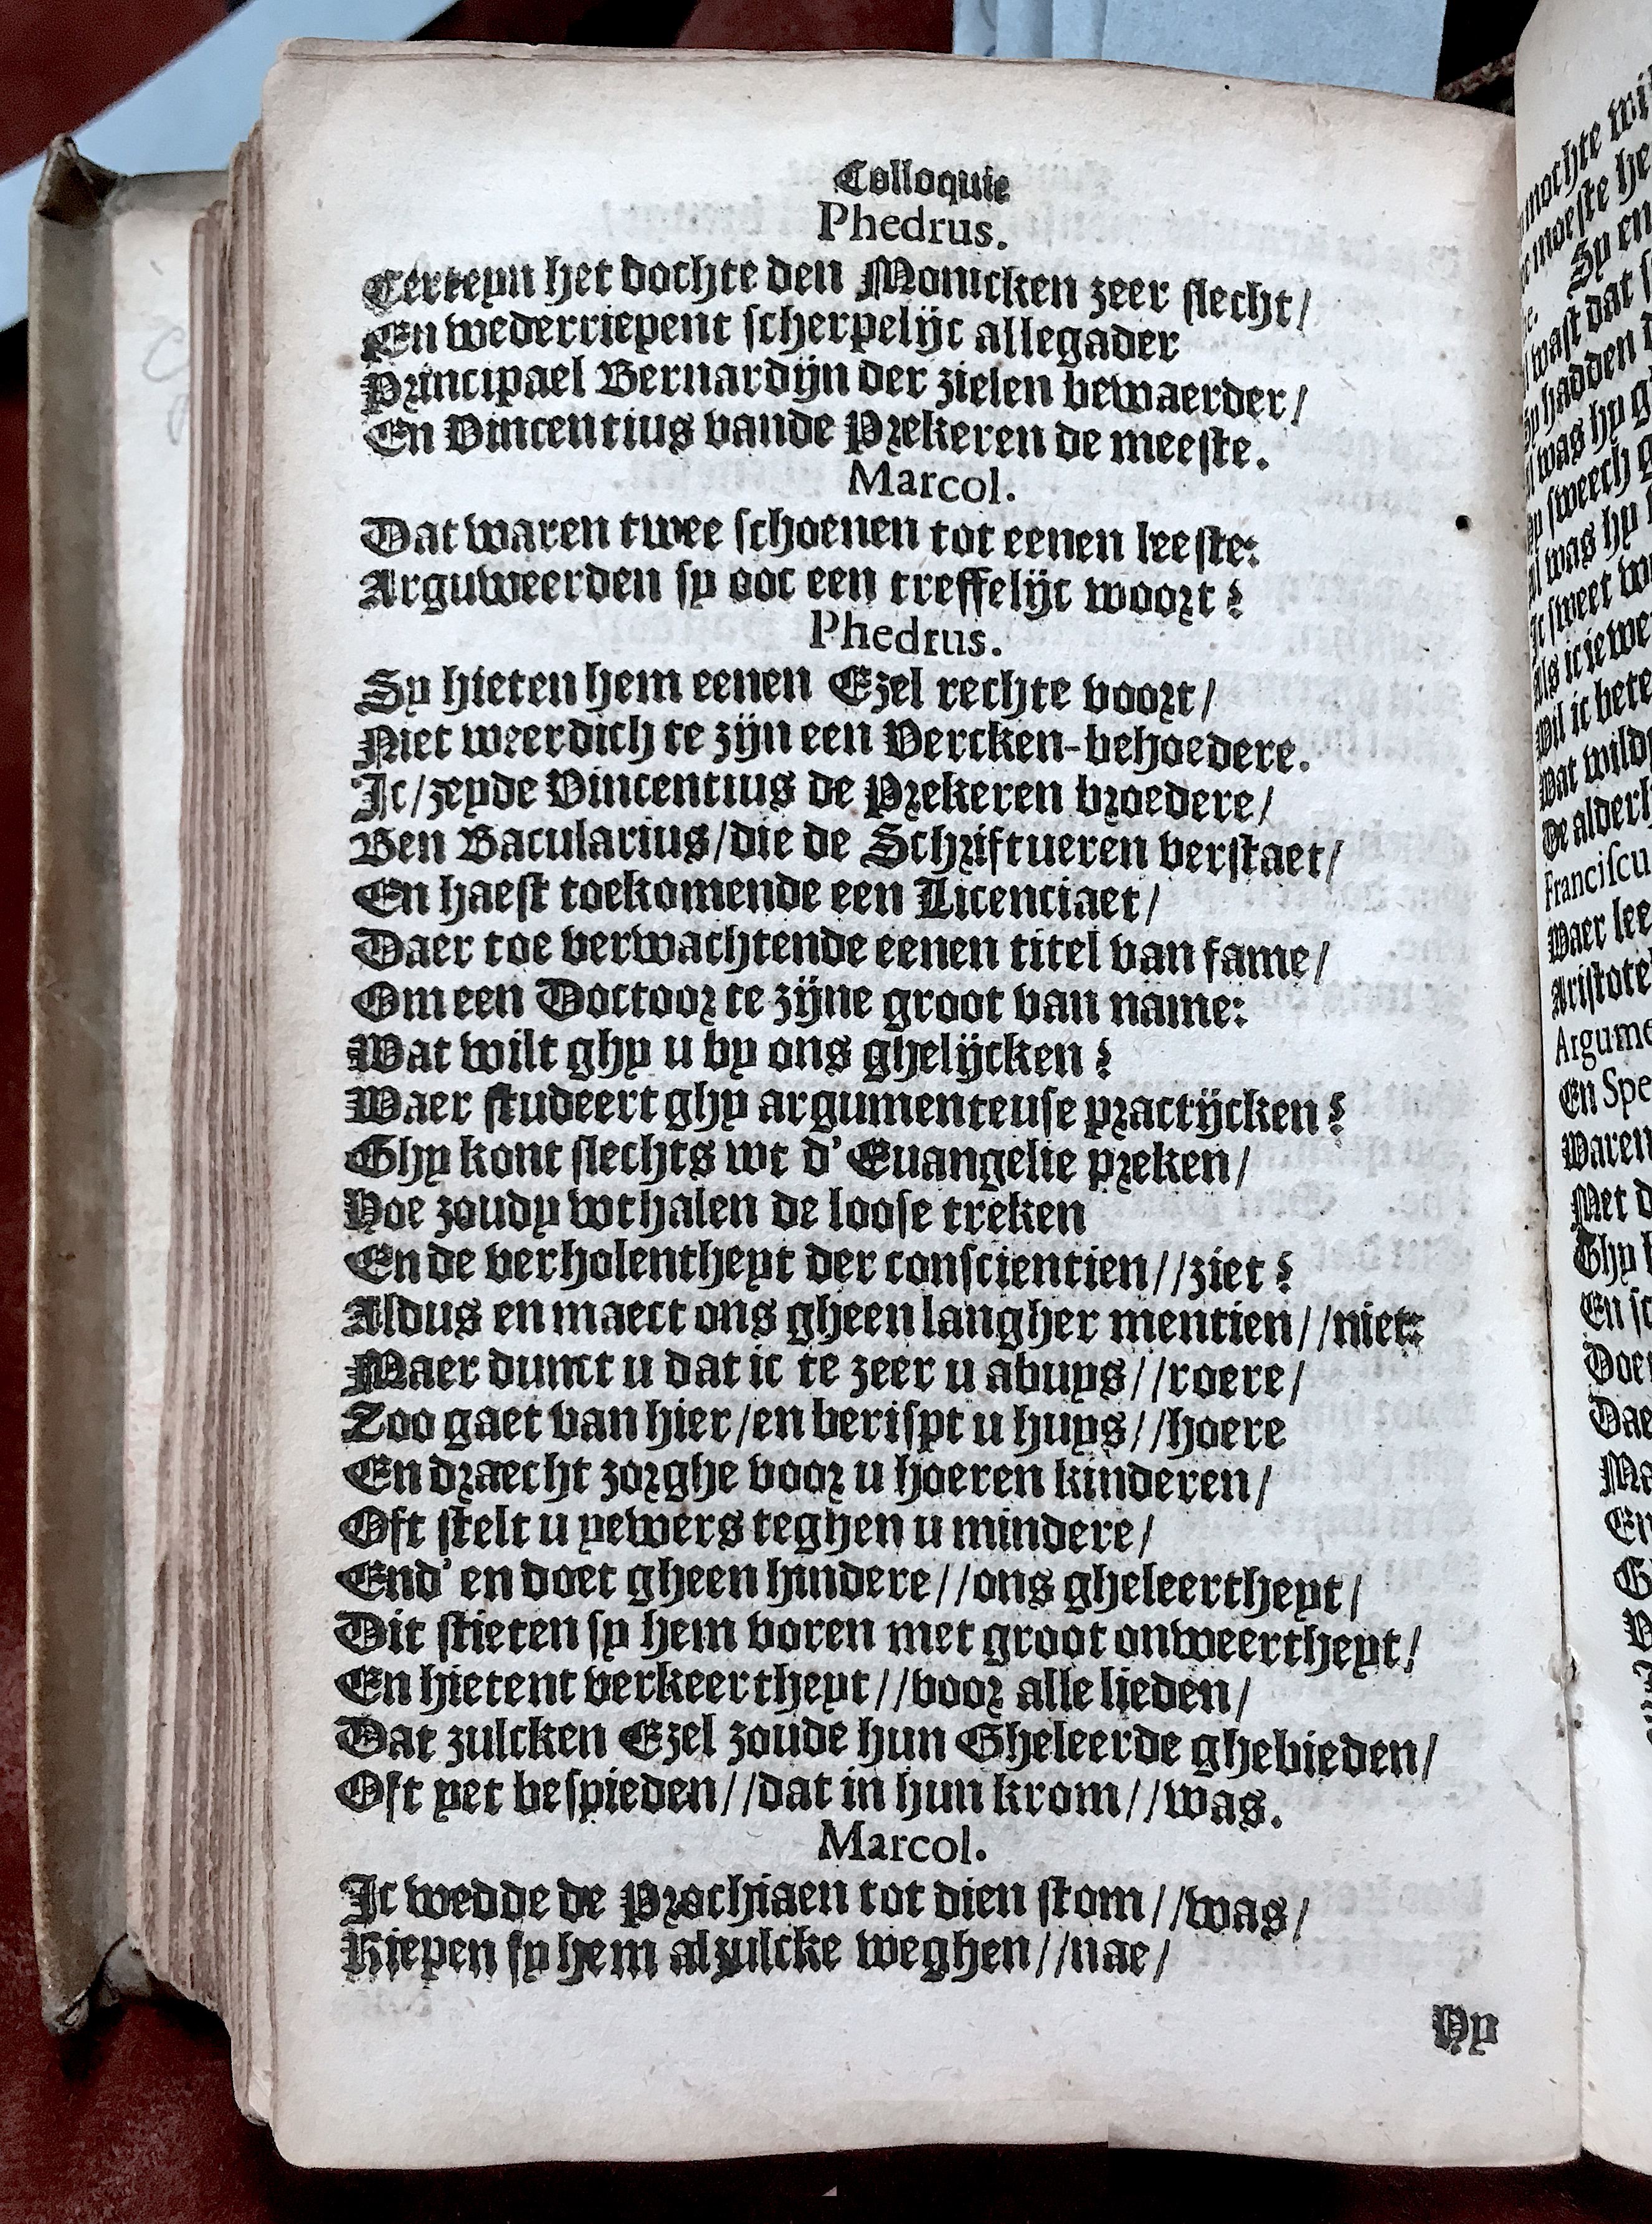 Colloquie
Phedrus.
Certeyn het dochte den Monicken zeer slecht/
En wederriepent scherpelijc allegader
Principael Bernardijn der zielen bewaerder/
En Vincentius vande Prekeren de meeste.
Marcol.
Dat waren twee schoenen tot eenen leeste:
Arguweerden sy ooc een treffelijc woort?
Phedrus.
Sy hieten hem eenen Ezel rechte voort/
Niet weerdich te zijn een Vercken-behoedere.
Ic/zeyde Vincentius de Prekeren broedere/
Ben Bacularius/die de Schriftueren verstaet/
En haest toekomende een Licenciaet/
Daer toe verwachtende eenen titel van fame/
Om een Doctoor te zijne groot van name:
Wat wilt ghy u by ons ghelijcken?
Waer studeert ghy argumenteuse practijcken?
Ghy kont slechts wt d'Euangelie preken/
Hoe zoudy wthalen de loose treken
En de verholentheyt der conscientien//ziet?
Aldus en maect ons gheen langher mentien//niet:
Maer dunct u dat ic te zeer u abuys//roere/
Zoo gaet van hier/en berispt u huys//hoere
En draecht zorghe voor u hoeren kinderen/
Oft stelt u yewers teghen u mindere/
End' en doet gheen hindere//ons gheleertheyt/
Dit stieten sy hem voren met groot onweertheyt/
En hietent verkeertheyt//voor alle lieden/
Dat zulcken Ezel zoude hun Gheleerde ghebieden/
Oft yet bespieden//dat in hun krom//was.
Marcol.
Ic wedde de Prochiaen tot dien stom//was/
Riepen sy hem alzulcke weghen//nae/
Hy
mochte wi
moeste he
Sy en
wast dat s
hadden
was hy g
sweech g
was hy
Ic sweet
Als ic iewe
Wil ic bete
Wat wild
De alder
Franciscu
Waer lee
Aristote
Argume
En Spe
Waren
Met d
Ghy
En sc
Doe
Dae
Ma
En